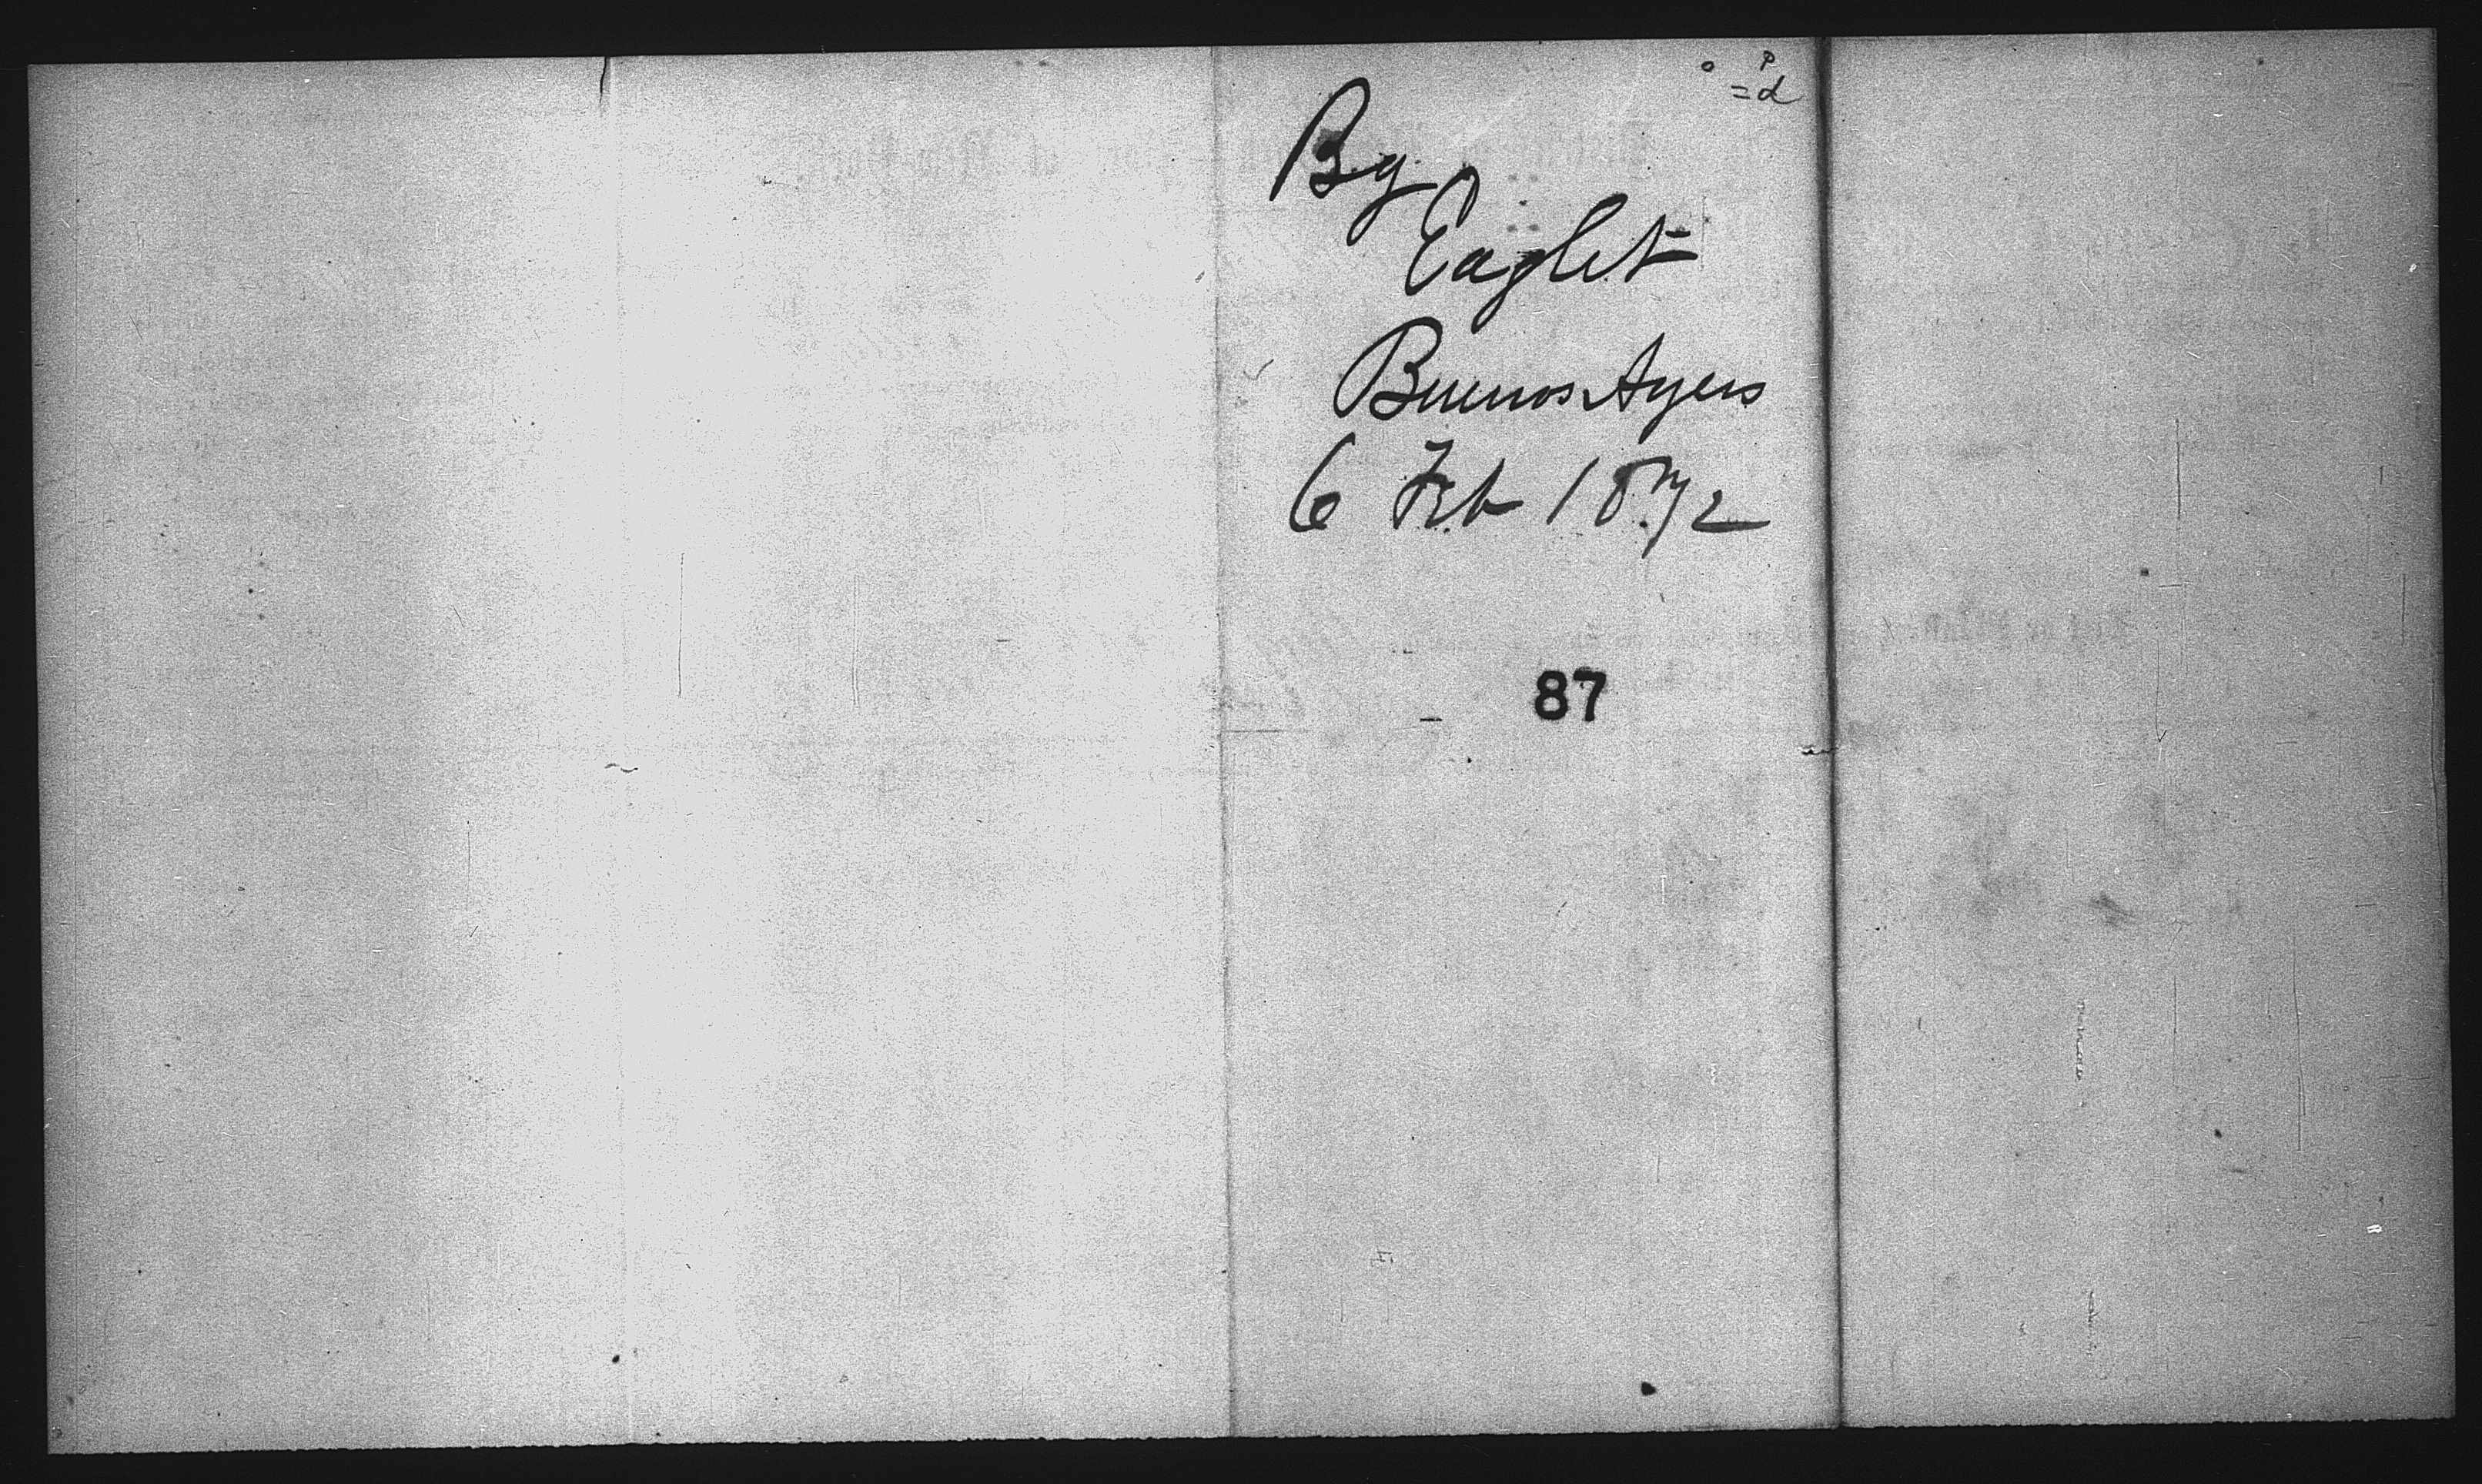 Bg
Eaglet
Buenos Ayers
6 Feb 1872
87